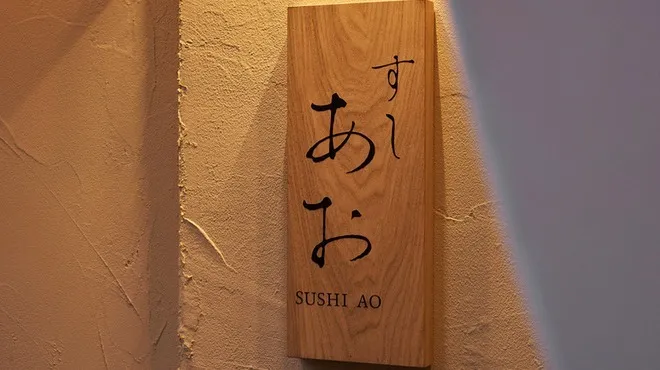 すし
あお
SUSHI AO